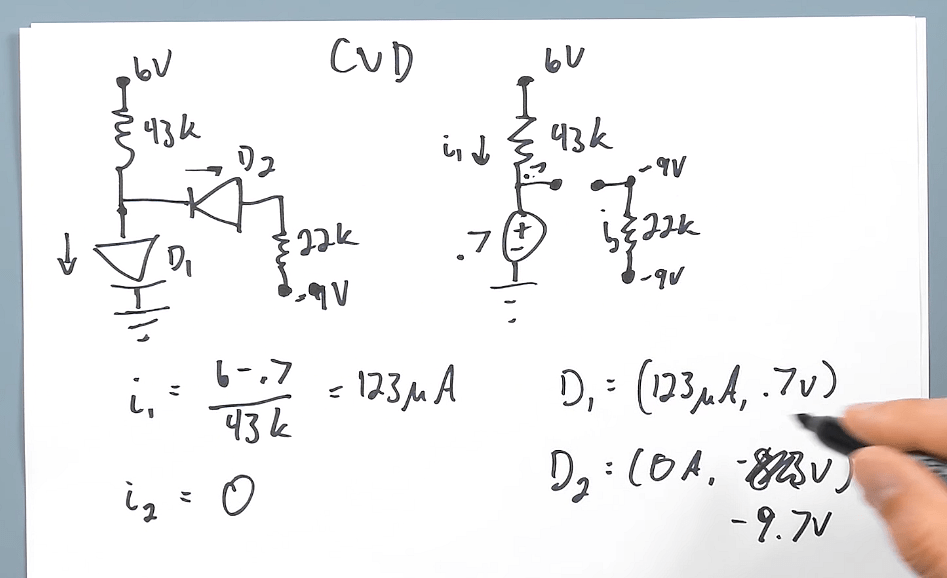 CVD
6V
43k
D2
D1
22k
-9V
6V
i1
43k
.7
.7
+
-
-9V
i2
22k
-9V
i1 = 6-.7 / 43k = 123μA
i2 = 0
D1 = (123μA, .7V)
D2 = (0A, V)
-9.7V